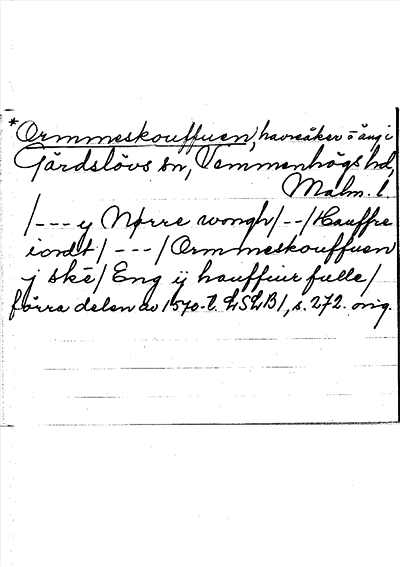 *Ormmeskouffuen, havreåker o äng i
Gärdslövs sn, Vemmenhögs hd,
Malm. l.
/--- y Nørre wongh/--/Hauffre
iordt/---/Ormmeskouffuen
j skē/Eng ij hauffuir fulle/
förra delen av 1570-t. LSLB/, s. 272. orig.